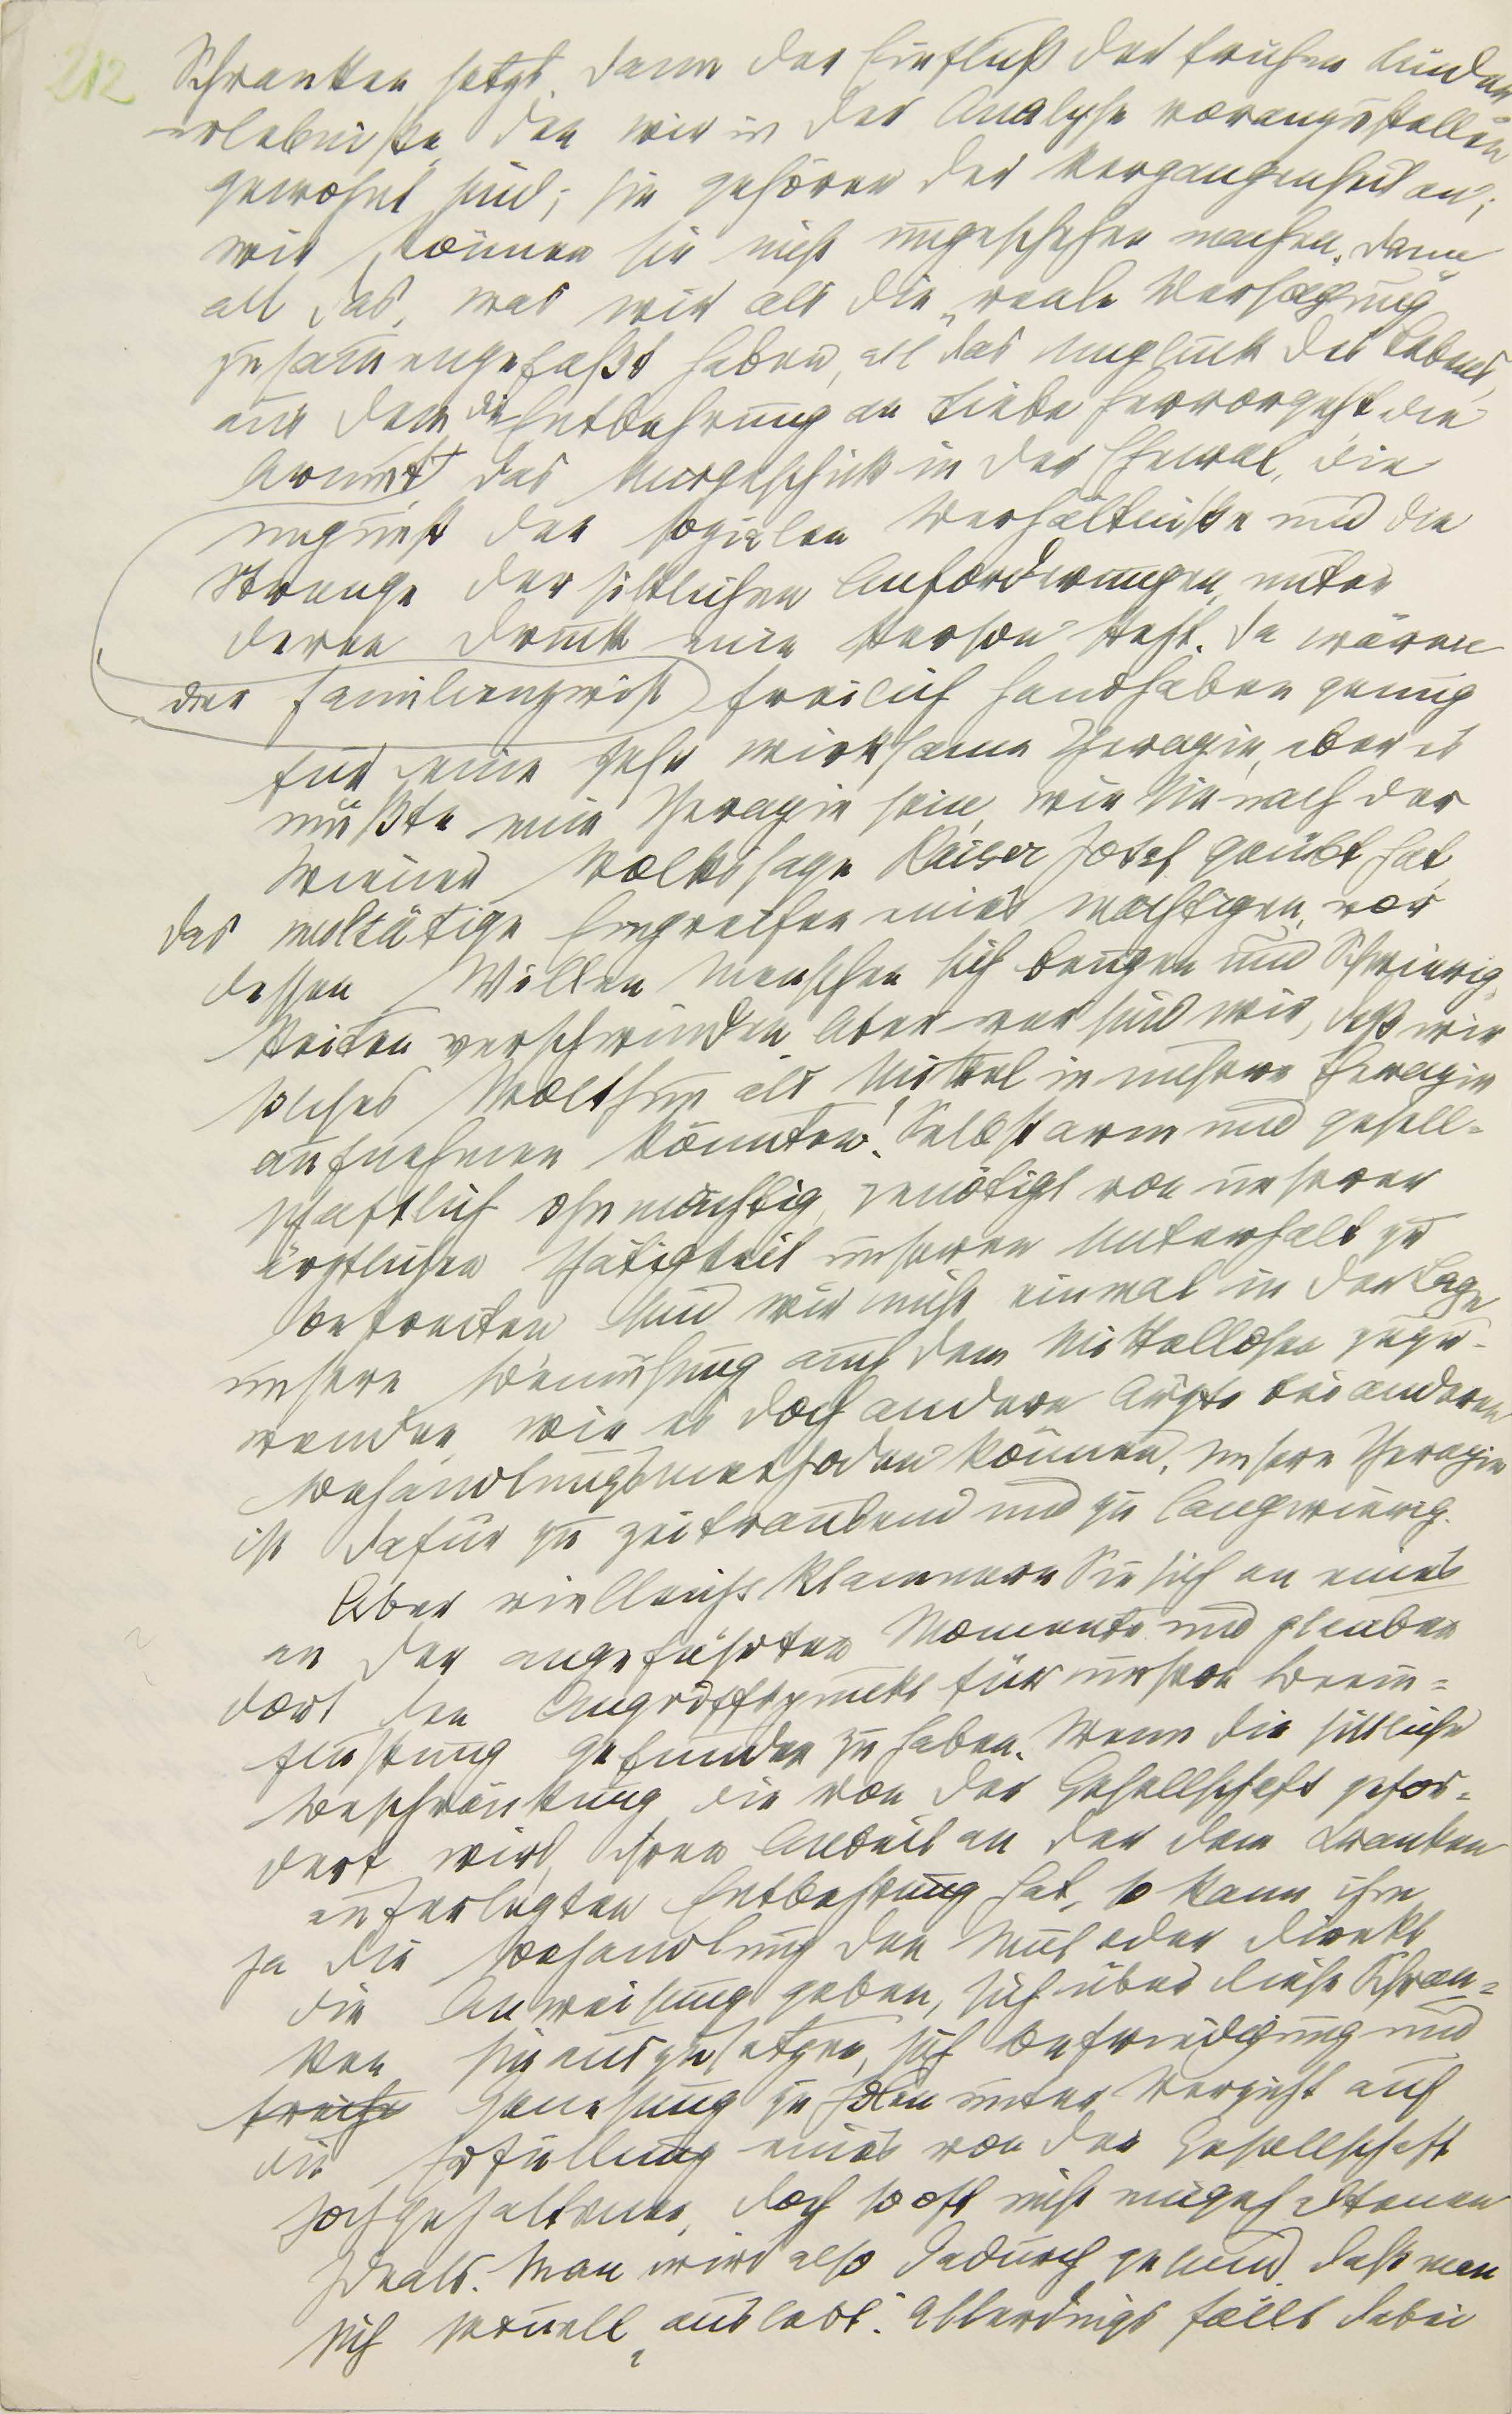 212
Schranken setzt. Dann der Einfluß der frühen Kinder
erlebnisse, den wir in der Analyse voranzustellen
gewohnt sind; sie gehören der Vergangenheit an;
wir können sie nicht ungeschehen machen. Dann
all das, was wir als die „reale Versagung“
zusammengefaßt haben, all das Unglück des Lebens,
aus dem die Entbehrung an Liebe hervorgeht die
Armut, das Missgeschick in der Ehewal, die
ungunst der sozialen Verhältnisse und die
Strenge der sittlichen Anforderungen, unter
deren Druck eine Person steht. Da wären
der Familienzwist freilich Handhaben genug
für eine sehr wirksame Therapie, aber es
müßte eine Therapie sein, wie sie nach der
Wiener Volkssage Kaiser Josef geübt hat
das wolltätige Eingreifen eines mächtigen, vor
dessen Willen Menschen sich beugen und Schwierig-
keiten verschwinden. Aber wer sind wir, daß wir
solches Wolthun als Mittel in unsere Therapie
aufnehmen könnten! Selbst arm und gesell-
schaftlich ohnmächtig, genötigt von unserer
ärztlichen Thätigkeit unseren Unterhalt zu
bestreiten sind wir nicht einmal in der Lage
unsere Bemühung auch dem Mittellosen zuzu-
wenden wie es doch andere Ärzte bei anderen
Behandlungsmethoden können. Unsere Therapie
ist dafür zu zeitraubend und zu langwierig.
Aber vielleicht klammern Sie sich an eines
an der angeführten Momente und glauben
dort den Angriffspunkt für unsere Beein-
flussung gefunden zu haben. Wenn die sittliche
Beschränkung die von der Gesellschaft gefor-
dert wird, ihren Anteil an der dem Kranken
auferlegten Entbehrung hat, so kann ihm
ja die Behandlung den Mut oder direkt
die Anweisung geben, sich über diese Schran-
ken hinauszusetzen, sich Befriedigung und
Genesung zu holen unter Verzicht auf
die Erfüllung eines von der Gesellschaft
hochgehaltenen, doch so oft nicht eingehaltenen
Ideals. Man wird also dadurch gesund, daß man
sich sexuell „auslebt“. Allerdings fällt dabei